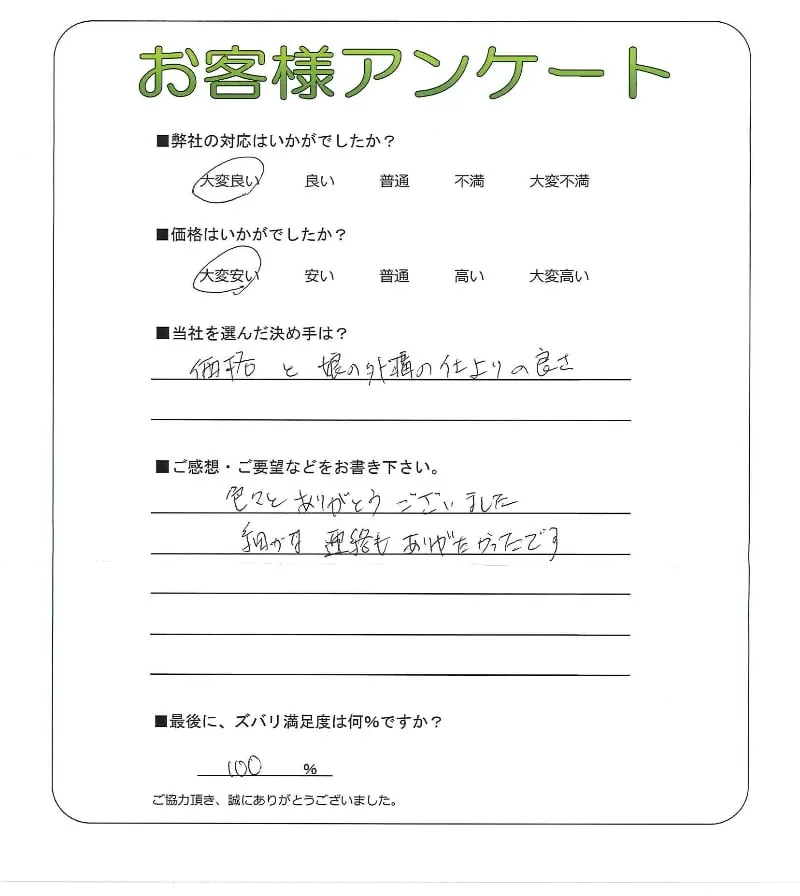 お客様アンケート
■弊社の対応はいかがでしたか？
大変良い 良い 普通 不満 大変不満
■価格はいかがでしたか？
大変安い 安い 普通 高い 大変高い
■当社を選んだ決め手は？
価格 と 娘の外構の仕上りの良さ
■ご感想・ご要望などをお書き下さい。
色々と ありがとう ございました
細かな 連絡も ありがたかったです
■最後に、ズバリ満足度は何％ですか？
100 ％
ご協力頂き、誠にありがとうございました。